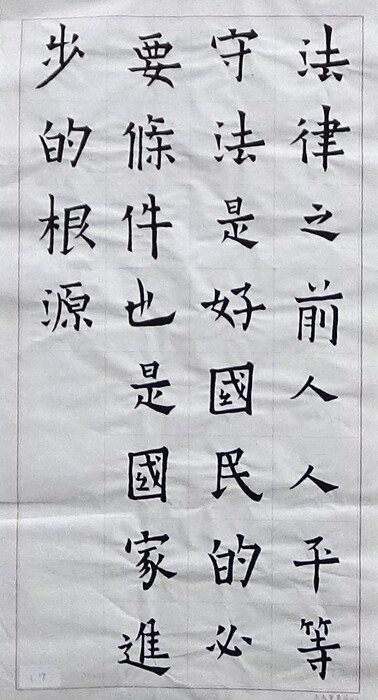 法律之前人人平等
守法是好國民的必
要條件也是國家進
步的根源